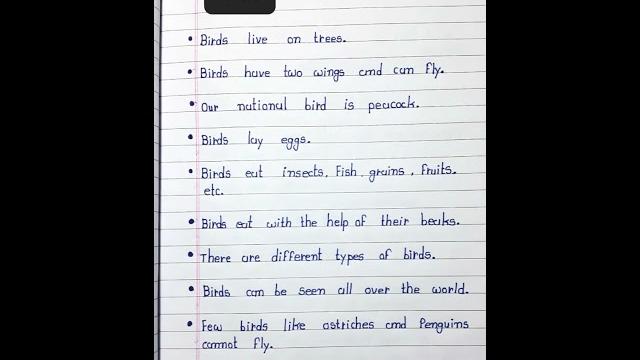 • Birds live on trees.
• Birds have two wings and can fly.
• Our national bird is peacock.
• Birds lay eggs.
• Birds eat insects, Fish, grains, fruits.
etc.
• Birds eat with the help of their beaks.
• There are different types of birds.
• Birds can be seen all over the world.
• Few birds like ostriches and Penguins
cannot fly.